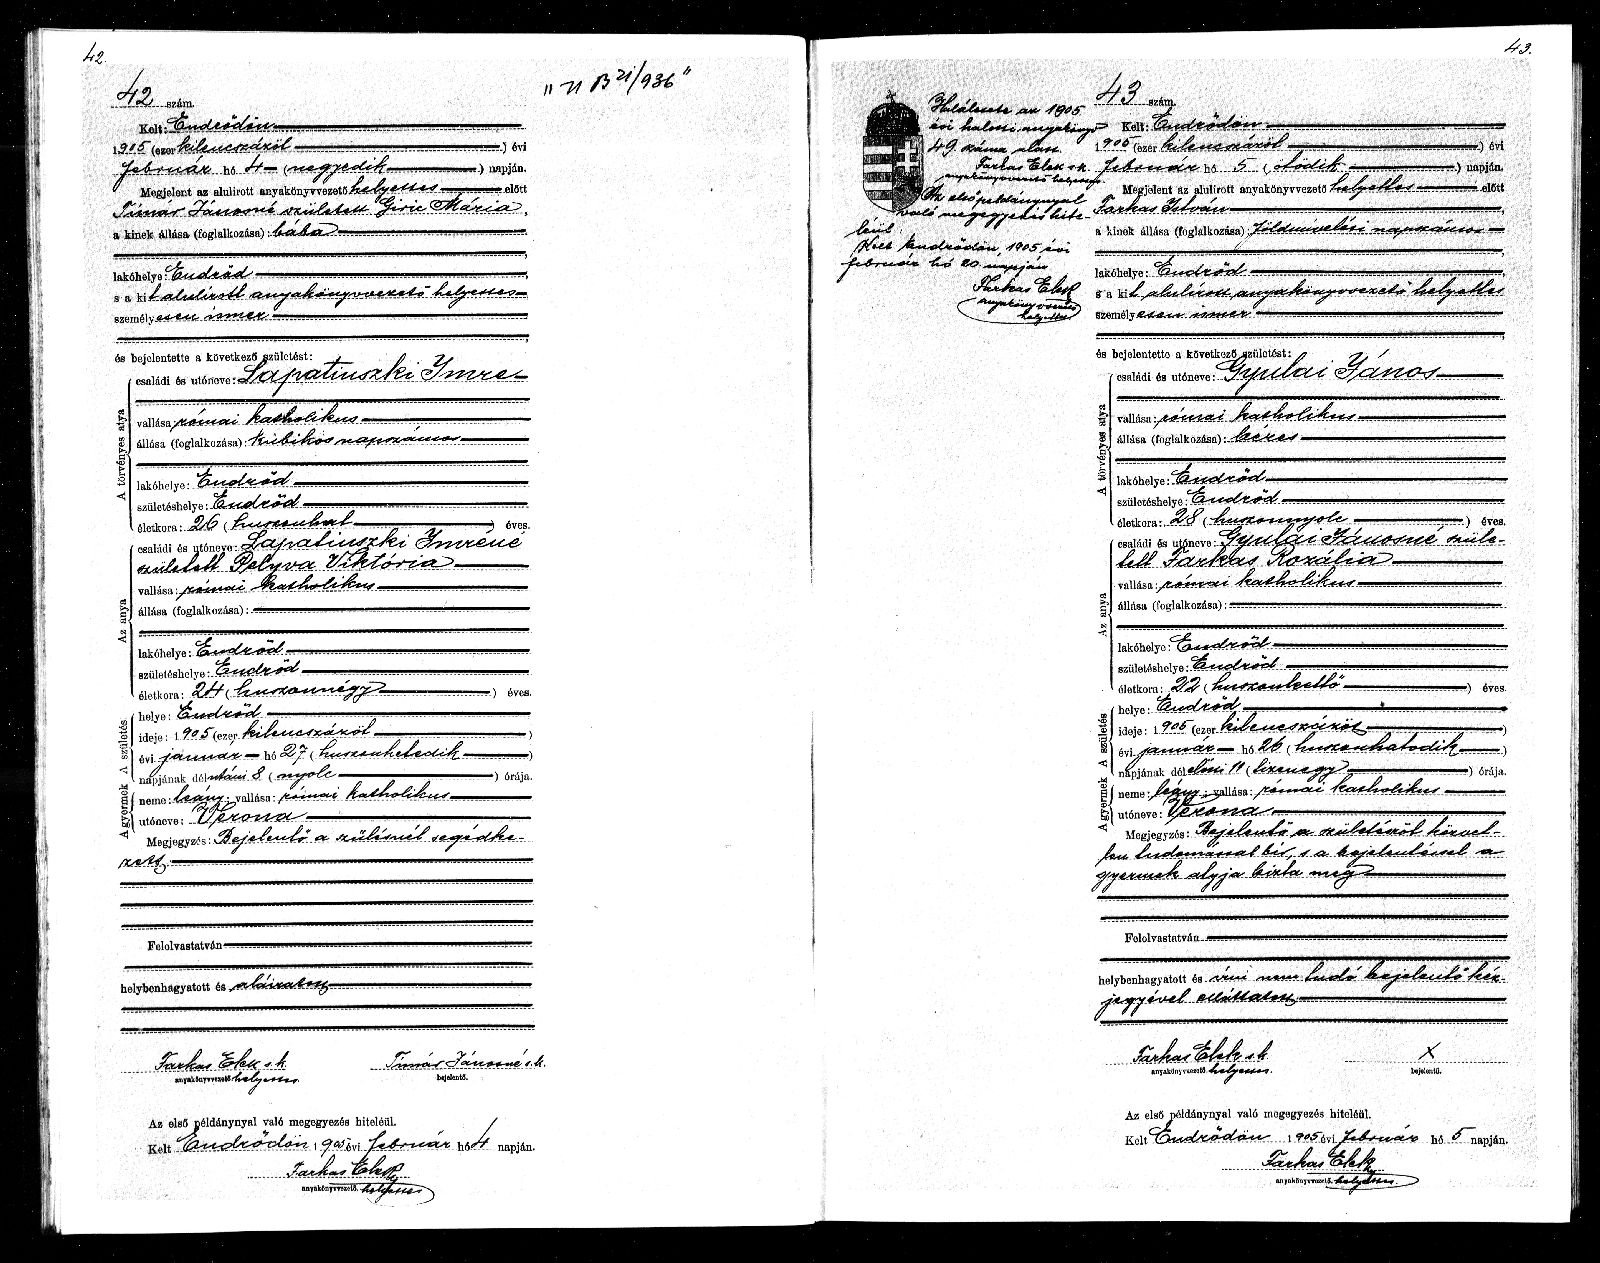 42.
42 szám.
"U B 21/936"
Kelt: Endrődön
1905 (ezer kilencszázöt) évi
február hó 4 (negyedik) napján.
Megjelent az alulirott anyakönyvvezető helyettes előtt
Tímár Jánosné született Giric Mária,
a kinek állása (foglalkozása): bába
lakóhelye: Endrőd
s a kit alulírott anyakönyvvezető helyettes
személyesen ismer
és bejelentette a következő születést:
A törvényes atya
családi és utóneve: Lapatinszki Imre
vallása: római katholikus
állása (foglalkozása): kubikos napszámos
lakóhelye: Endrőd
születéshelye: Endrőd
életkora: 26 (huszonhat) éves.
Az anya
családi és utóneve: Lapatinszki Imréné
született Pelyva Viktória
vallása: római katholikus
állása (foglalkozása):
lakóhelye: Endrőd
születéshelye: Endrőd
életkora: 24 (huszonnégy) éves.
A születés
helye: Endrőd
ideje: 1905 (ezer kilencszázöt)
évi január hó 27 (huszonhetedik)
napjának délutáni 8 (nyolc) órája.
A gyermek
neme: leány; vallása: római katholikus
utóneve: Verona
Megjegyzés: Bejelentő a szülésnél segédke-
zett
Felolvastatván
helybenhagyatott és aláiratott
Farkas Elek s.k.
anyakönyvvezető helyettes
Tímár Jánosné s.k.
bejelentő.
Az első példánynyal való megegyezés hiteléül.
Kelt Endrődön 1905 évi február hó 4 napján.
Farkas Elek
anyakönyvvezető. helyettes
43.
43 szám.
Halálesete az 1905
évi halotti anyakönyv
49 száma alatt
Farkas Elek s.k.
anyakönyvvezető helyettes
Az első példánynyal
való megegyezés hite-
léül.
Kelt Endrődön, 1905 évi
február hó 20 napján
Farkas Elek
anyakönyvvezető
helyettes
Kelt: Endrődön
1905 (ezer kilencszázöt) évi
február hó 5 (ötödik) napján.
Megjelent az alulirott anyakönyvvezető helyettes előtt
Farkas István
a kinek állása (foglalkozása): földmüvelési napszámos
lakóhelye: Endrőd
s a kit alulírott anyakönyvvezető helyettes
személyesen ismer
és bejelentette a következő születést:
A törvényes atya
családi és utóneve: Gyulai János
vallása: római katholikus
állása (foglalkozása): béres
lakóhelye: Endrőd
születéshelye: Endrőd
életkora: 28 (huszonnyolc) éves.
Az anya
családi és utóneve: Gyulai Jánosné szüle-
tett Farkas Rozália
vallása: római katholikus
állása (foglalkozása):
lakóhelye: Endrőd
születéshelye: Endrőd
életkora: 22 (huszonkettő) éves.
A születés
helye: Endrőd
ideje: 1905 (ezer kilencszázöt)
évi január hó 26 (huszonhatodik)
napjának délelőtti 11 (tizenegy) órája.
A gyermek
neme: leány; vallása: római katholikus
utóneve: Verona
Megjegyzés: Bejelentő a születésről közvet-
len tudomással bír, s a bejelentéssel a
gyermek atyja bízta meg
Felolvastatván
helybenhagyatott és írni nem tudó bejelentő kéz-
jegyével elláttatott
Farkas Elek s.k.
anyakönyvvezető helyettes.
X
bejelentő.
Az első példánynyal való megegyezés hiteléül.
Kelt Endrődön 1905 évi február hó 5 napján.
Farkas Elek
anyakönyvvezető. helyettes